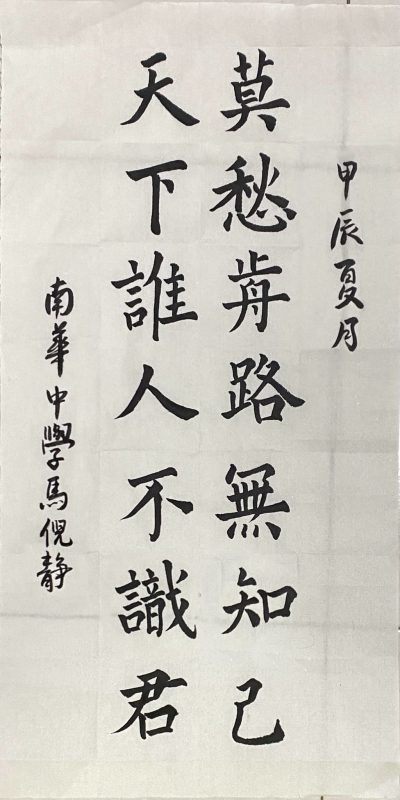 甲辰夏月
莫愁歬路無知己
天下誰人不識君
南華中學馬倪靜